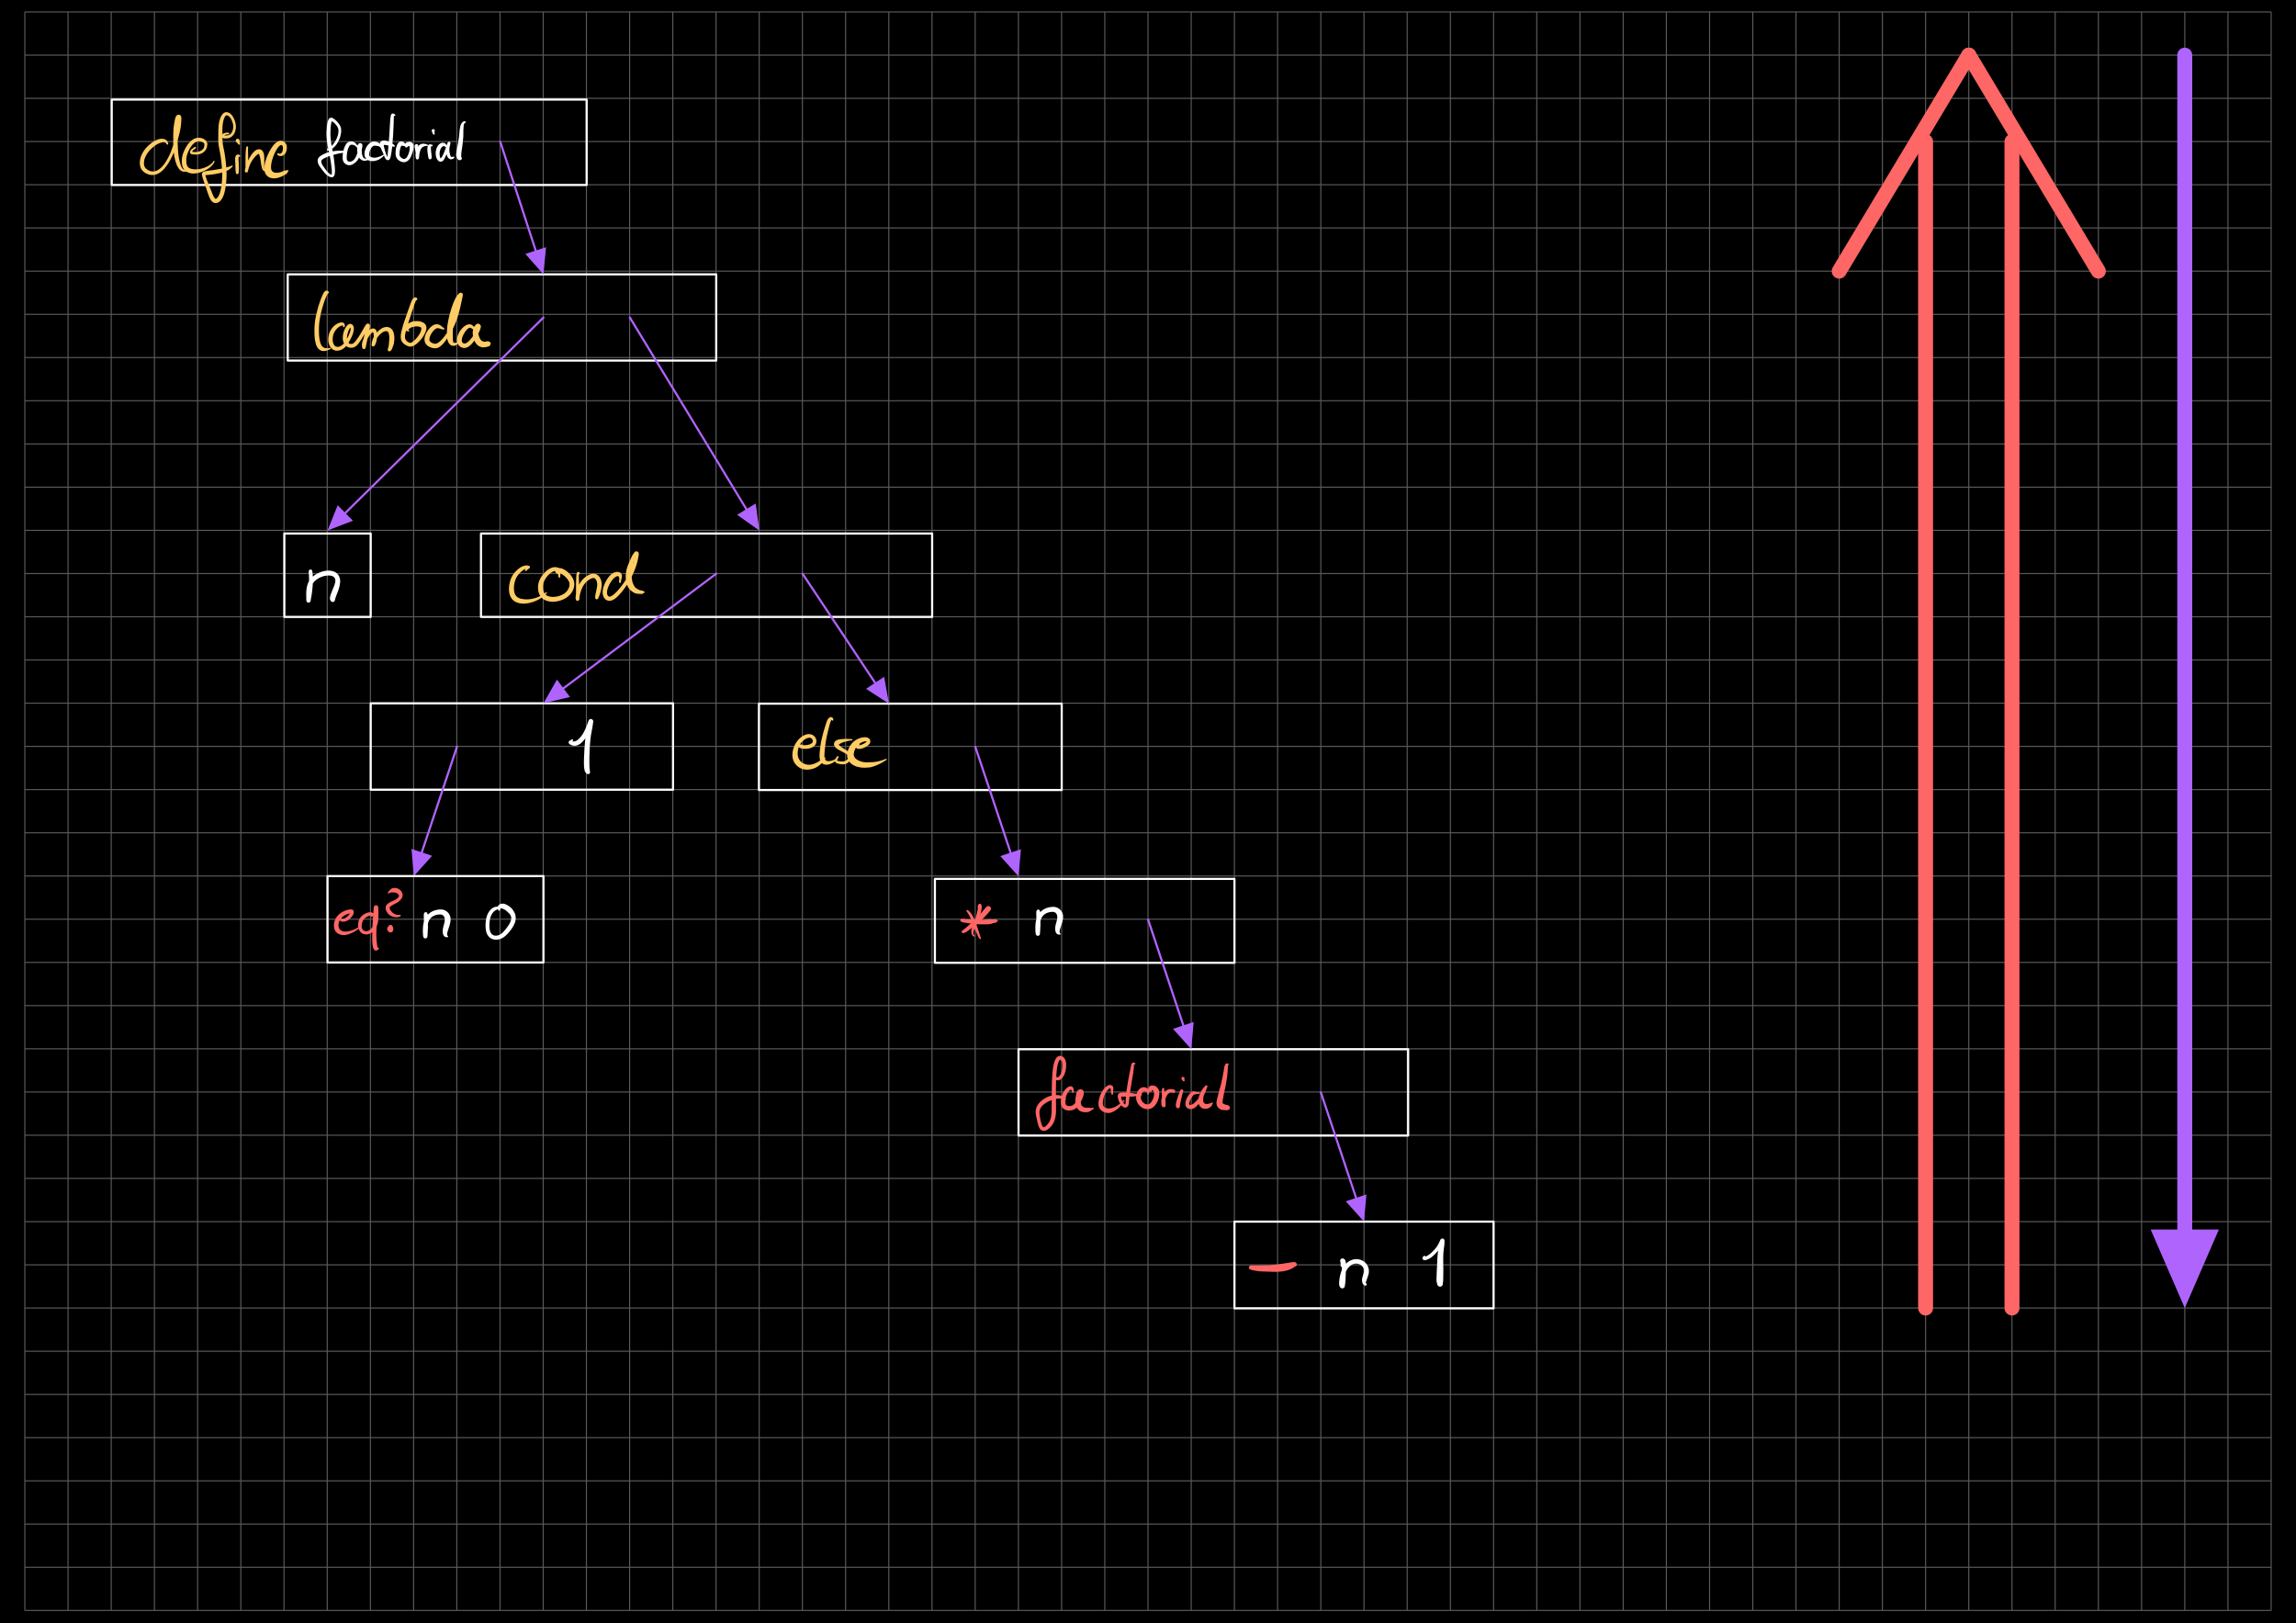 define factorial
lambda
n
cond
1
else
eq? n 0
* n
factorial
- n 1